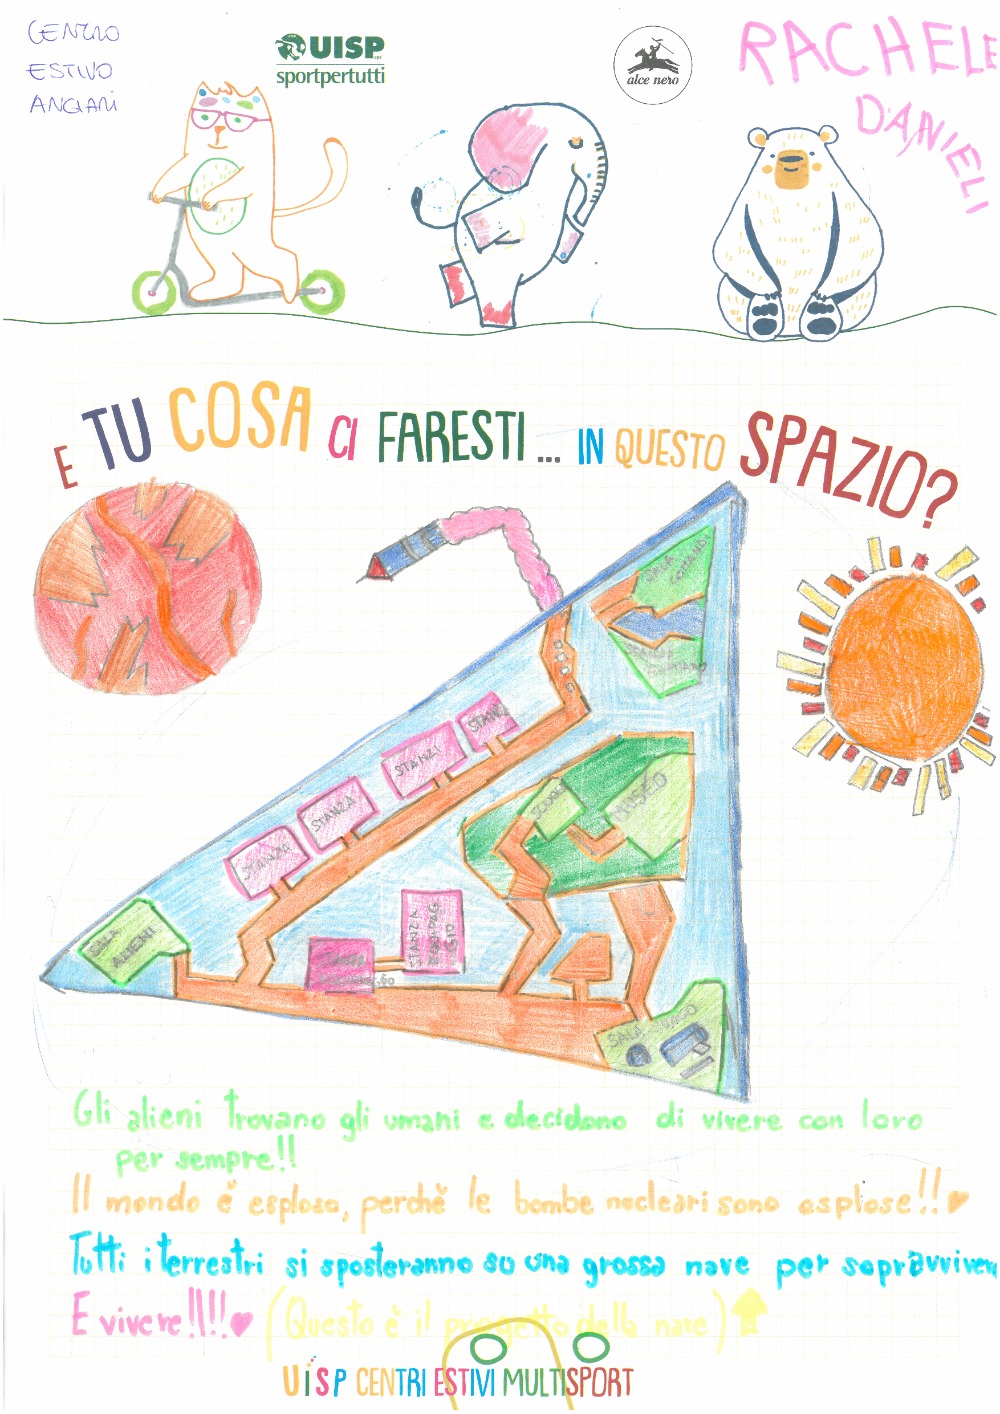 CENTRO
ESTIVO
ANGIARI
UISP
sportpertutti
alce nero
RACHELE
DANIELI
E TU COSA CI FARESTI... IN QUESTO SPAZIO?
SALA
COMANDI
STANZA
STANZA
STANZA
STANZA
SCUOLA
MUSEO
SALA
ALIENI
STANZA
SALA
SVAGO
Gli alieni trovano gli umani e decidono di vivere con loro
per sempre!!
Il mondo è esploso, perchè le bombe nucleari sono esplose!!
Tutti i terrestri si sposteranno su una grossa nave per sopravvivere
E vivere!!!! (Questo è il progetto della nave)
UiSP CENTRI ESTIVI MULTISPORT